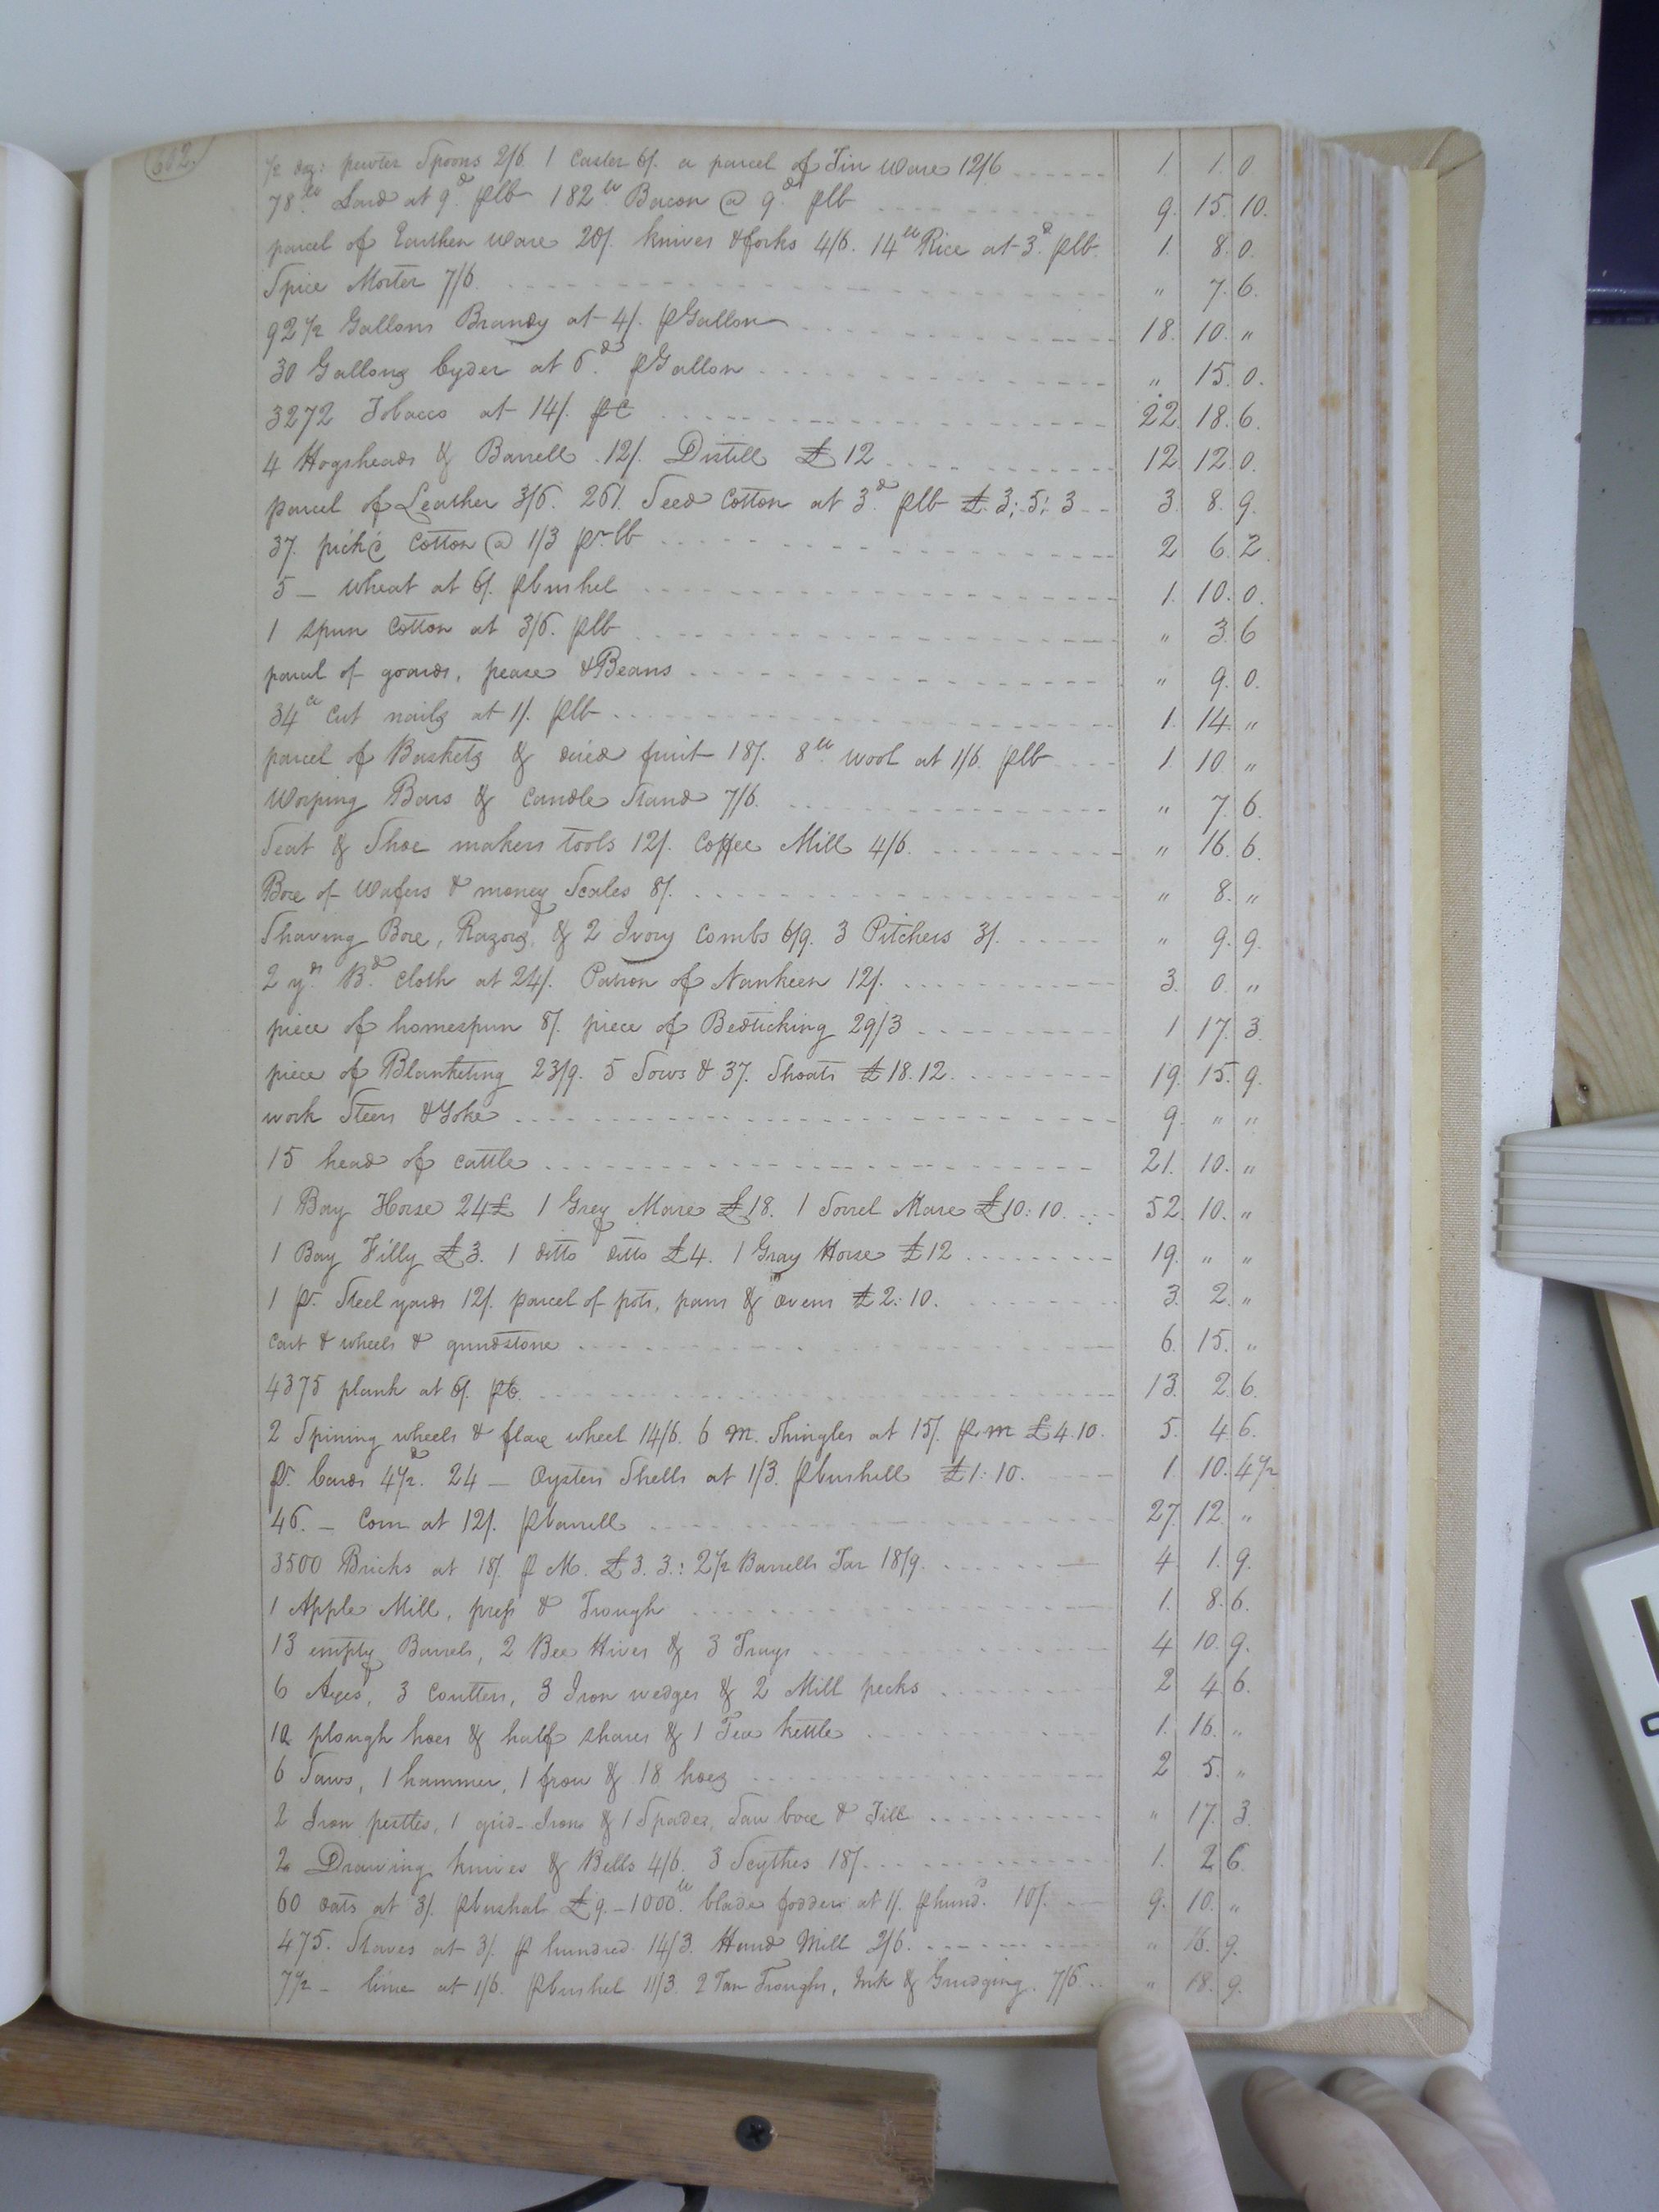 602.
½ doz: pewter Spoons 2/6. 1 Caster 6/. a parcel of Tin Ware 12/6 1. 1. 0
78 lb Lard at 9d plb 182 lb Bacon @ 9d plb 9. 15. 10.
parcel of Earthen Ware 20/. knives & forks 4/6. 14 lb Rice at 3d. plb. 1. 8. 0.
Spice Morter 7/6. " 7. 6.
92½ Gallons Brandy at 4/. pGallon 18. 10. "
30 Gallons Cyder at 6d. pGallon " 15. 0.
3272 Tobacco at 14/. pC 22. 18. 6.
4 Hogsheads & Barrell 12/. Distill £12 12. 12. 0.
parcel of Leather 3/6. 261. Seed Cotton at 3d. plb £3; 5; 3 3. 8. 9.
37. pick'd Cotton @ 1/3 pr lb 2 6. 2.
5 – wheat at 6/. pbushel 1. 10. 0.
1 spun Cotton at 3/6. plb " 3. 6
parcel of goards, pease & Beans " 9. 0.
34 lb Cut nails at 1/. plb 1. 14. "
parcel of Baskets & dried fruit 18/. 8 lb wool at 1/6 plb 1. 10. "
Worping Bars & Candle Stand 7/6. " 7. 6.
Seat & Shoe makers tools 12/. Coffee Mill 4/6. " 16. 6.
Box of Wafers & money Scales 8/. " 8. "
Shaving Box, Razors, & 2 Ivory Combs 6/9. 3 Pitchers 3/. " 9. 9.
2 yds Bd. Cloth at 24/. Patron of Nankeen 12/. 3. 0. "
piece of homespun 8/. piece of Bedticking 29/3 1 17. 3.
piece of Blanketing 23/9. 5 Sows & 37. Shoats £18.12. 19. 15. 9.
work Steers & Yoke 9. " "
15 head of Cattle 21. 10. "
1 Bay Horse 24£ 1 Grey Mare £18. 1 Sorrel Mare £10: 10. 52. 10. "
1 Bay Filly £3. 1 ditto ditto £4. 1 Gray Horse £12 19. " "
1 pr. Steel yards 12/. parcel of pots, pans & ovens £2: 10. 3. 2. "
Cart & wheels & grindstone 6. 15. "
4375 plank at 6/. pC. 13. 2. 6.
2 Spining wheels & flax wheel 14/6. 6 M. Shingles at 15/. p. M £4.10. 5. 4. 6.
pr. Cards 4½d. 24 – Oysters Shells at 1/3. pbushell £1: 10. 1. 10. 4½
46. – Corn at 12/. pbarrell 27. 12. "
3500 Bricks at 18/. p M. £3. 3.: 2½ Barrells Tar 18/9. 4. 1. 9.
1 Apple Mill, press & Trough 1. 8. 6.
13 empty Barrels, 2 Bee Hives & 3 Trays 4 10. 9.
6 Axes, 3 Coulters, 3 Iron wedges & 2 Mill pecks 2 4 6.
12 plough hoes & half shares & 1 Tea kettle 1. 16. "
6 Saws, 1 hammer, 1 frow & 18 hoes 2 5. "
2 Iron pestles, 1 grid-Iron & 1 Spades, Saw box & Till " 17. 3.
2 Drawing knives & Bells 4/6. 3 Scythes 18/. 1. 2 6.
60 oats at 3/. pbushal £9. – 1000 lb. blade fodder at 1/. phund. 10/. 9. 10. "
475. Staves at 3/. p hundred 14/3. Hand Mill 2/6. " 16. 9.
7½ – lime at 1/6. pbushel 11/3. 2 Tan Troughs, Ink & 7/6. " 18. 9.